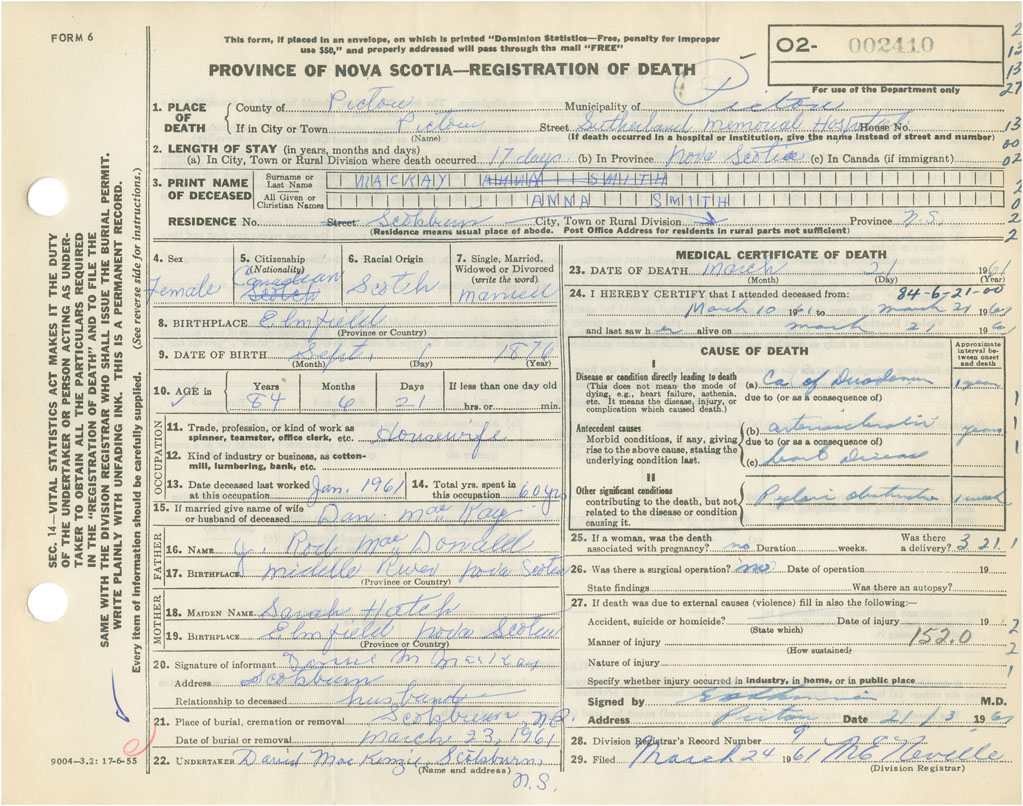 FORM 6
This form, if placed in an envelope, on which is printed "Dominion Statistics—Free, penalty for improper
use $50," and properly addressed will pass through the mail "FREE"
PROVINCE OF NOVA SCOTIA—REGISTRATION OF DEATH
O2- 002410
For use of the Department only
2
13
13
27
1. PLACE OF DEATH County of Pictou Municipality of Pictou
If in City or Town Pictou Street Sutherland Memorial Hospital House No. 13
(Name) (If death occurred in a hospital or institution, give the name instead of street and number)
00
2. LENGTH OF STAY (in years, months and days)
(a) In City, Town or Rural Division where death occurred 17 days (b) In Province Nova Scotia (c) In Canada (if immigrant) 02
3. PRINT NAME OF DECEASED Surname or Last Name MACKAY ANNA SMITH 2
All Given or Christian Names ANNA SMITH 0
RESIDENCE No. Street Scotsburn City, Town or Rural Division Province N.S. 2
(Residence means usual place of abode. Post Office Address for residents in rural parts not sufficient) 2
SEC. 14—VITAL STATISTICS ACT MAKES IT THE DUTY
OF THE UNDERTAKER OR PERSON ACTING AS UNDER-
TAKER TO OBTAIN ALL THE PARTICULARS REQUIRED
IN THE "REGISTRATION OF DEATH" AND TO FILE THE
SAME WITH THE DIVISION REGISTRAR WHO SHALL ISSUE THE BURIAL PERMIT.
WRITE PLAINLY WITH UNFADING INK. THIS IS A PERMANENT RECORD.
Every item of information should be carefully supplied. (See reverse side for instructions.)
4. Sex
Female
5. Citizenship
(Nationality)
Canadian
Scotch
6. Racial Origin
Scotch
7. Single, Married,
Widowed or Divorced
(write the word)
married
8. BIRTHPLACE Elmfield
(Province or Country)
9. DATE OF BIRTH Sept. 1 1876
(Month) (Day) (Year)
10. AGE in Years Months Days If less than one day old
84 6 21 hrs. or min.
OCCUPATION
11. Trade, profession, or kind of work as
spinner, teamster, office clerk, etc. Housewife
12. Kind of industry or business, as cotton-
mill, lumbering, bank, etc.
13. Date deceased last worked
at this occupation Jan. 1961
14. Total yrs. spent in
this occupation 60 yrs
15. If married give name of wife
or husband of deceased Dan MacKay
FATHER
16. NAME J. Rod MacDonald
17. BIRTHPLACE Middle River Nova Scotia
(Province or Country)
MOTHER
18. MAIDEN NAME Sarah Hatch
19. BIRTHPLACE Elmfield Nova Scotia
(Province or Country)
20. Signature of informant Daniel M MacKay
Address Scotsburn
Relationship to deceased husband
21. Place of burial, cremation or removal Scotsburn N.S.
Date of burial or removal March 23, 1961
22. UNDERTAKER David MacKenzie, Scotsburn,
(Name and address) N.S.
9004-3.2: 17-6-55
MEDICAL CERTIFICATE OF DEATH
23. DATE OF DEATH March 21 1961
(Month) (Day) (Year)
84-6-21-00
24. I HEREBY CERTIFY that I attended deceased from:
March 10 1961 to march 21 1961
and last saw h er alive on march 21 1961
CAUSE OF DEATH
Approximate
interval be-
tween onset
and death
I
Disease or condition directly leading to death
(This does not mean the mode of
dying, e.g., heart failure, asthenia,
etc. It means the disease, injury, or
complication which caused death.)
(a) Ca of Duodenum 1 year
due to (or as a consequence of) 1
Antecedent causes
Morbid conditions, if any, giving
rise to the above cause, stating the
underlying condition last.
(b) arteriosclerotic years 1
due to (or as a consequence of) 1
(c) heart Disease
II
Other significant conditions
contributing to the death, but not
related to the disease or condition
causing it.
Pyloric obstruction 1 week
25. If a woman, was the death
associated with pregnancy? no Duration weeks. Was there
a delivery? 3 21 1
26. Was there a surgical operation? no Date of operation 19
State findings Was there an autopsy?
27. If death was due to external causes (violence) fill in also the following:—
Accident, suicide or homicide? Date of injury 19 2
(State which)
Manner of injury 152.0 2
(How sustained)
Nature of injury
Specify whether injury occurred in industry, in home, or in public place 1
Signed by M.D.
Address Pictou Date 21/3 1961
28. Division Registrar's Record Number 9
29. Filed March 24 1961 M E Neville
(Division Registrar)